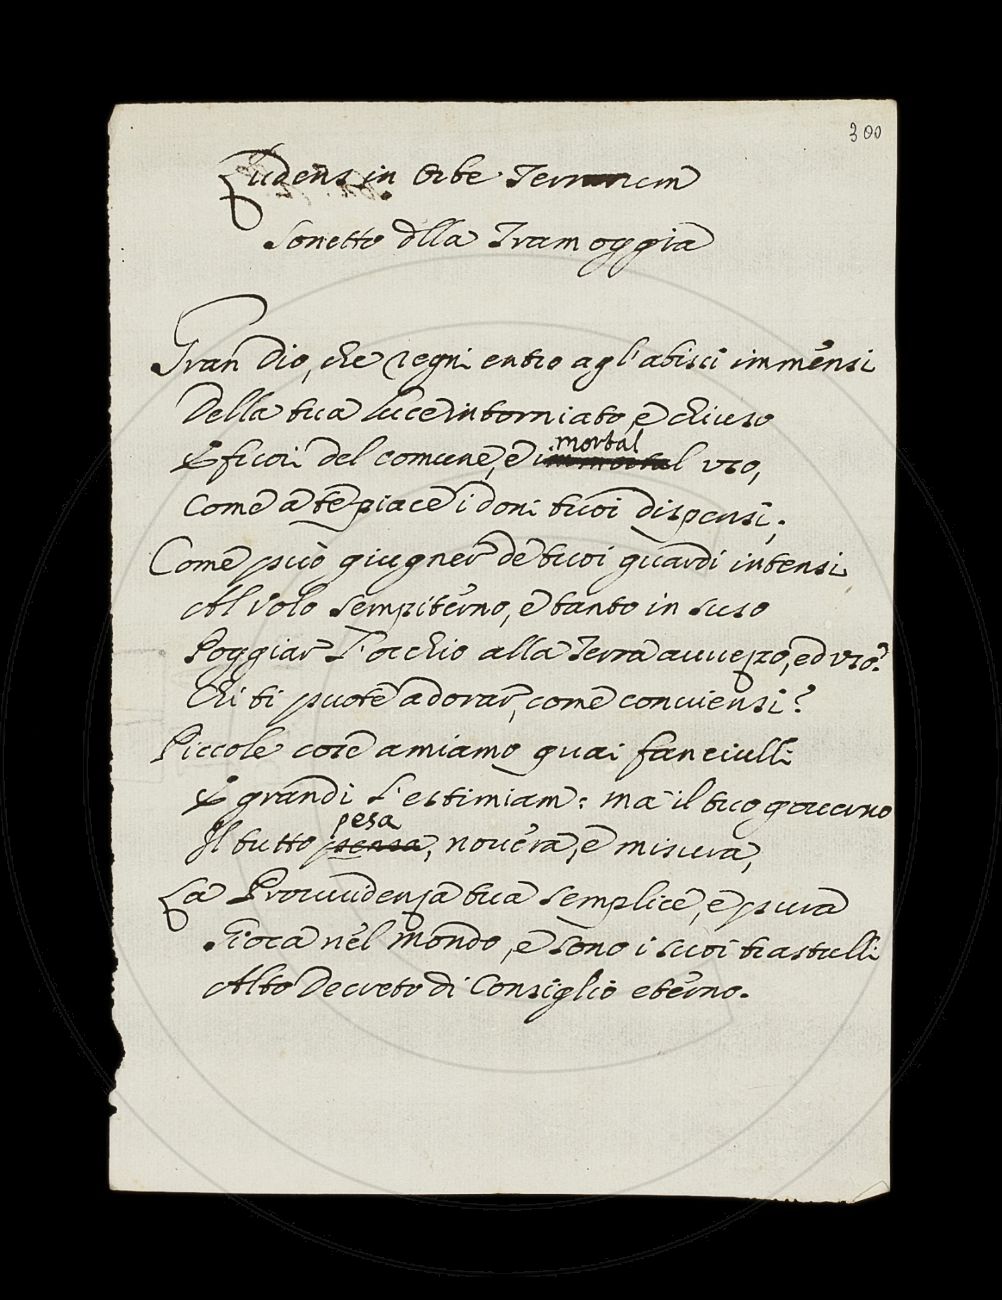 300
Ludens in Orbe Terrarum
Sonetto dlla Tramoggia
Gran Dio, che regni entro agl'abissi immensi
Della tua luce intorniato, e chiuso
E fuor del comune, e mortal uso,
Come a te piace i doni tuoi dispensi,
Come può giugner de tuoi guardi intensi
Al Volo sempiterno, e tanto in suso
Poggiar l'occhio alla Terra auuezzo, ed uso?
Chi ti puote adorar, come conuiensi?
Piccole cose amiamo quai fanciulli
E grandi l'estimiam: ma il tuo gouerno
Il tutto pesa, nouera, e misura,
La Prouuidenza tua semplice, e pura
Gioca nel mondo, e sono i suoi trastulli
Alto Decreto di Consiglio eterno.